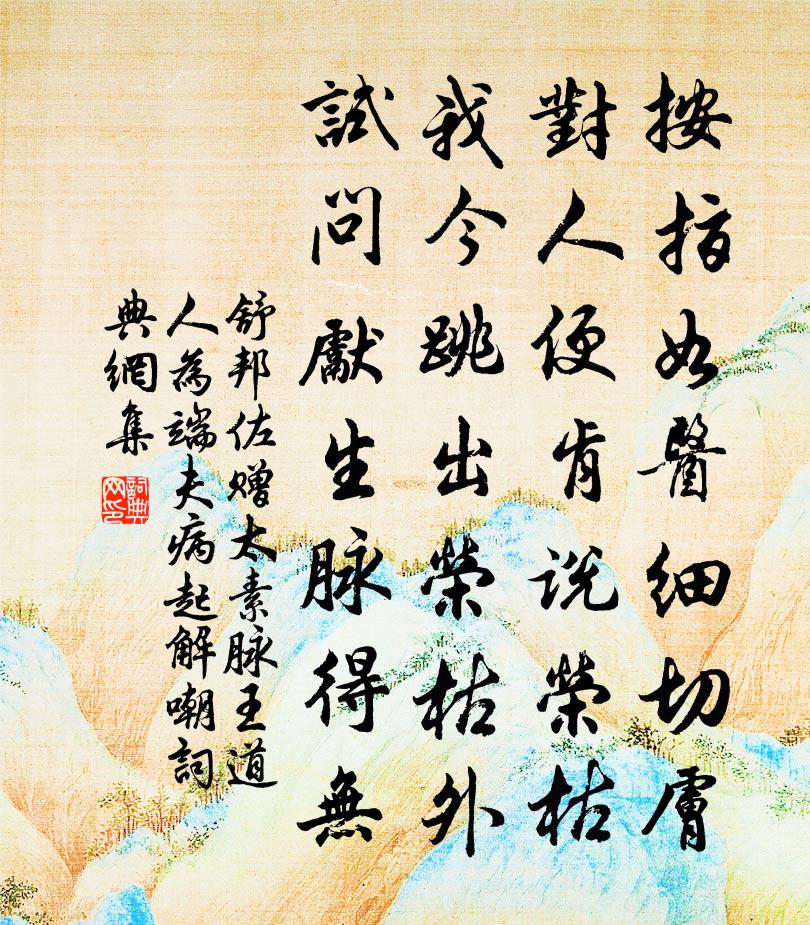 按指如醫細切膚
對人便肯說榮枯
我今跳出榮枯外
試問獻生脉得無
舒邦佐贈太素脉王道
人為端夫病起解嘲詞
典網集
詞典
网印